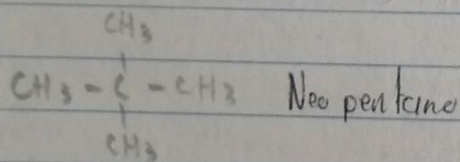 CH3
CH3 - C - CH3 Neo pentane
CH3